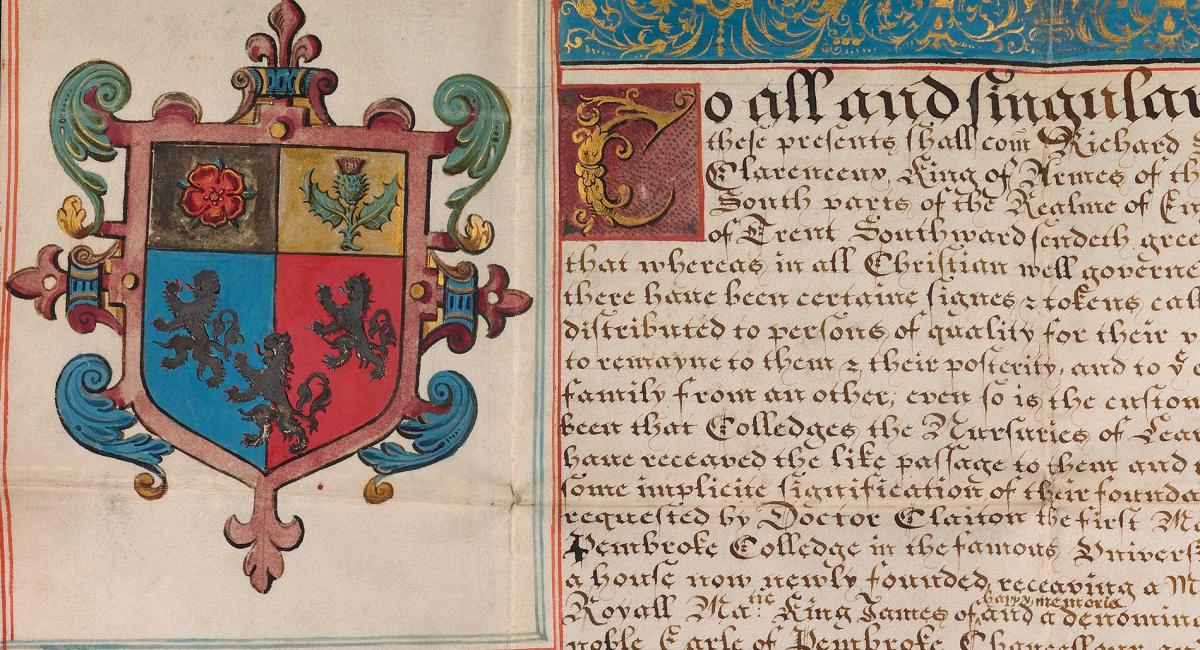 To all and singular
these presents shall com Richard
Clarenceux King of Armes of th
South parts of the Realme of En
of Trent Southward sendeth gree
that whereas in all Christian well governe
there have been certaine signes & tokens cal
distributed to persons of quality for their v
to remayne to them & their posterity, and to
family from an other, even so is the custom
been that Colledges the Nurseries of Lea
have receaved the like passage to them and
some implicite signification of their founda
requested by Doctor Claiton the first M
Pembroke Colledge in the famous Univers
a house now newly founded, receaving a M
happy memorie
Royall Ma:tie King James of and a denomin
noble Earle of Pembroke Chancellour an